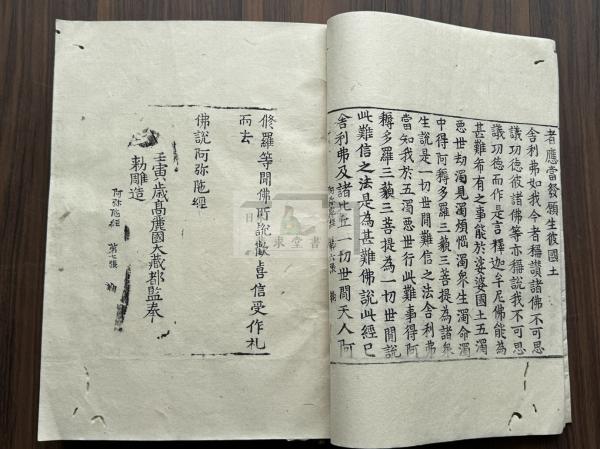 者應當發願生彼國土
舍利弗如我今者稱讚諸佛不可思
議功德彼諸佛等亦稱說我不可思
議功德而作是言釋迦牟尼佛能為
甚難希有之事能於娑婆國土五濁
惡世劫濁見濁煩惱濁衆生濁命濁
中得阿耨多羅三藐三菩提為諸衆
生說是一切世間難信之法舍利弗
當知我於五濁惡世行此難事得阿
耨多羅三藐三菩提為一切世間說
此難信之法是為甚難佛說此經已
舍利弗及諸比丘一切世間天人阿
修羅等聞佛所說歡喜信受作礼
而去
佛說阿弥陁經
壬寅歲高麗國大藏都監奉
勅雕造
阿弥陁經 第七張
求堂書